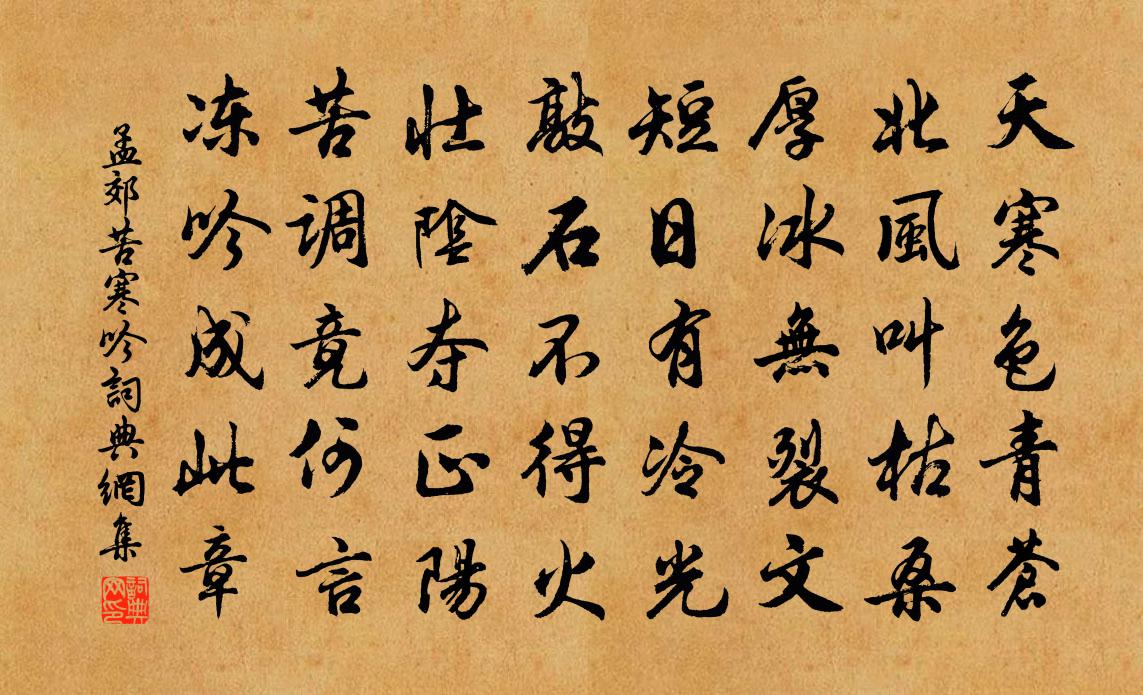 天寒色青蒼
北風叫枯桑
厚冰無裂文
短日有冷光
敲石不得火
壮陰夺正陽
苦调竟何言
冻吟成此章
孟郊苦寒吟詞典網集
詞典網印